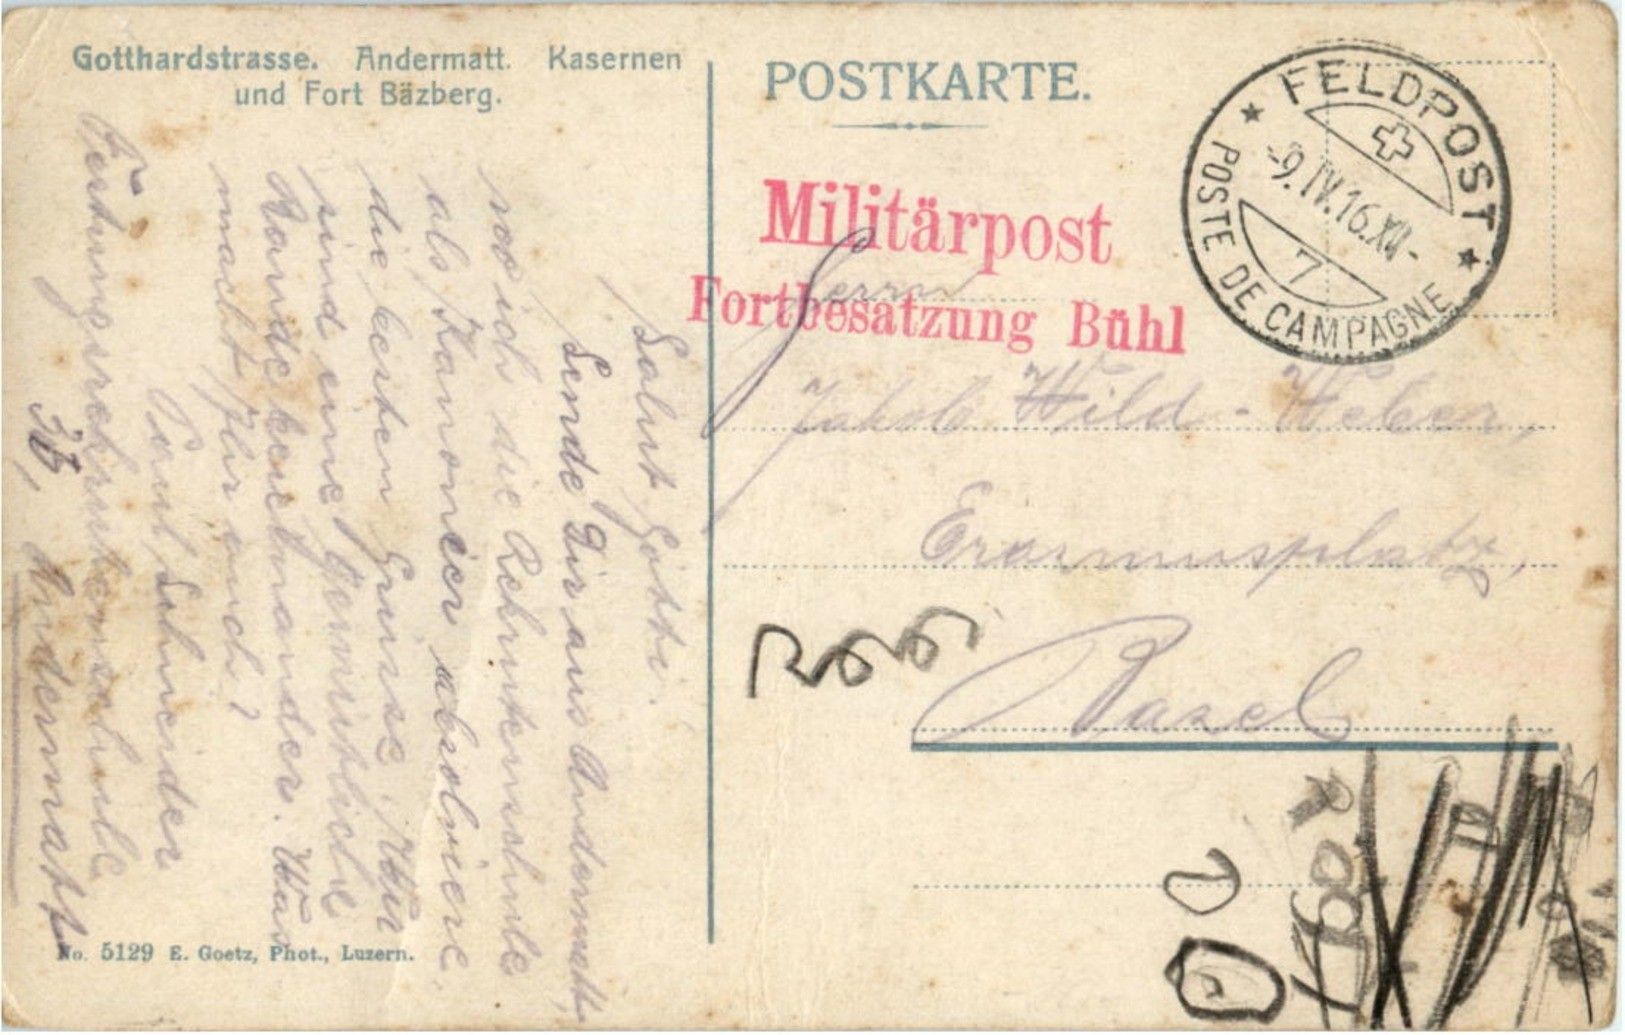 Gotthardstrasse. Andermatt. Kasernen
und Fort Bäzberg.
POSTKARTE.
FELDPOST
-9.IV.16.XII-
7
POSTE DE CAMPAGNE
Militärpost
Fortbesatzung Bühl
Herrn
Jakob Wild-Weber,
Erasmusplatz,
Basel
Salut Götti!
Sende Dir aus Andermatt,
wo ich die Rekrutenschule
als Kanonier absolviere,
die besten Grüsse. Wir
sind eine gemütliche
Bande beieinander. Was
macht Ihr auch?
Paul Schneider
Festungsrekrutenschule
Andermatt
No. 5129 E. Goetz, Phot., Luzern.